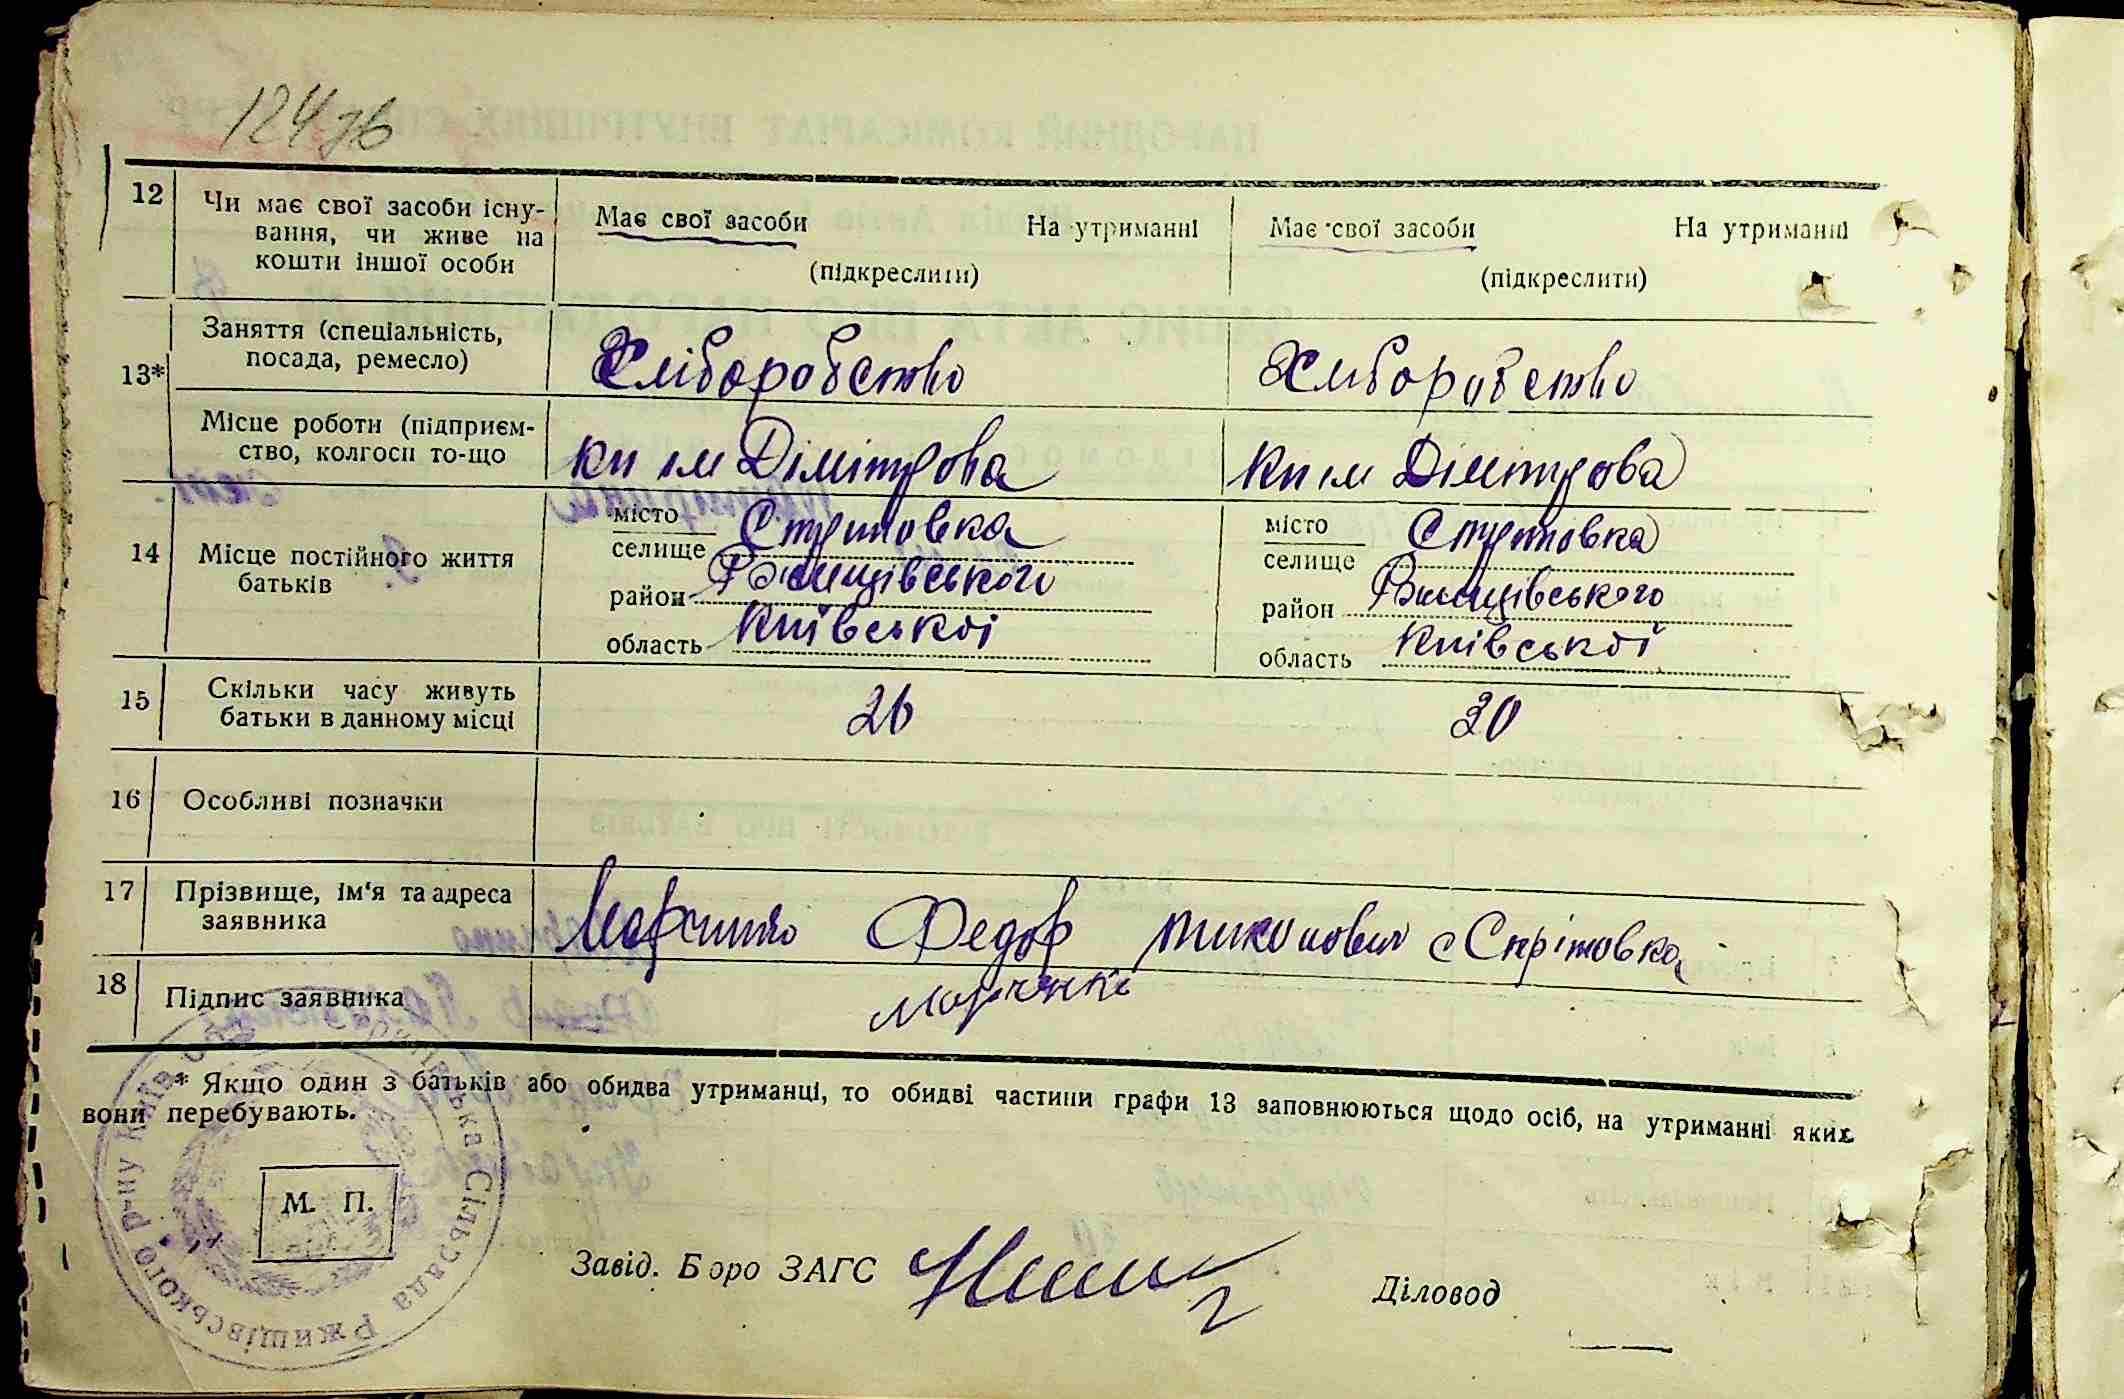 124 зв
12
Чи має свої засоби існу-
вання, чи живе на
кошти іншої особи
Має свої засоби На утриманні
(підкреслити)
Має свої засоби На утриманні
(підкреслити)
13*
Заняття (спеціальність,
посада, ремесло)
Хліборобство
Хліборобство
Місце роботи (підприєм-
ство, колгосп то-що
кп ім Дімітрова
кп ім Дімітрова
14
Місце постійного життя
батьків
місто
селище
район Ржищівського
область Київської
місто
селище
район Ржищівського
область Київської
15
Скільки часу живуть
батьки в данному місці
26
30
16
Особливі позначки
17
Прізвище, ім'я та адреса
заявника
Федор
18
Підпис заявника
* Якщо один з батьків або обидва утриманці, то обидві частини графи 13 заповнюються щодо осіб, на утриманні яких
вони перебувають.
М. П.
Завід. Бюро ЗАГС
Діловод
Сільська Рада Ржищівського р-ну Київськ